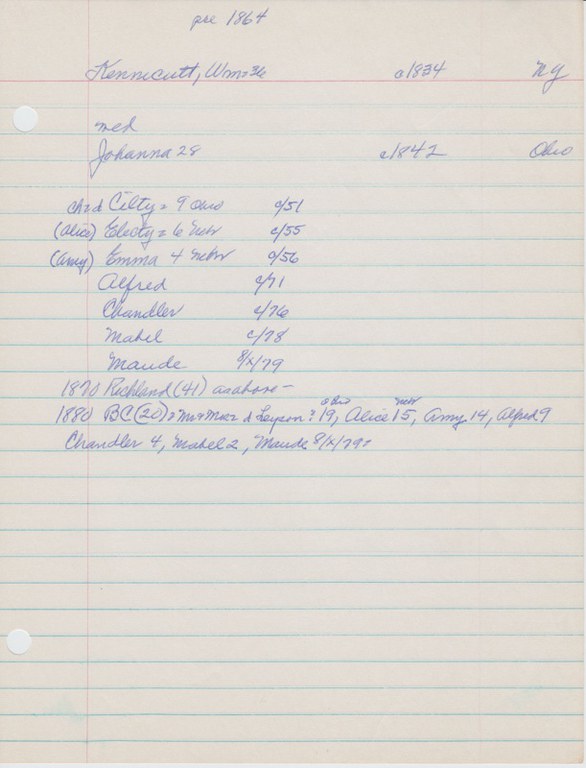 pre 1864
Kennicutt, Wm = 36 c1834 NY
med
Johanna 28 c1842 Ohio
chld Cilty = 9 Ohio c/51
(Alice) Electy = 6 Nebr c/55
(Amy) Emma 4 Nebr c/56
Alfred c/71
Chandler c/76
Mabel c/78
Maude 8/x/79
1870 Richland (41) as above -
1880 BC (20) = Mr + Mrs = d ? 19, Alice 15, Amy 14, Alfred 9
Ohio Nebr
Chandler 4, Mabel 2, Maude 8/x/79 =